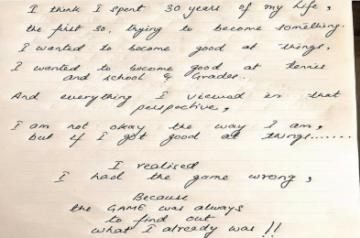 I think I spent 30 years of my life,
the first 30, trying to become something.
I wanted to become good at things,
I wanted to become good at tennis
and school & Grades.
And everything I viewed in that
perspective,
I am not okay the way I am,
but if I got good at things.......
I realised
I had the game wrong,
Because
the GAME was always
to find out
what I already was !!